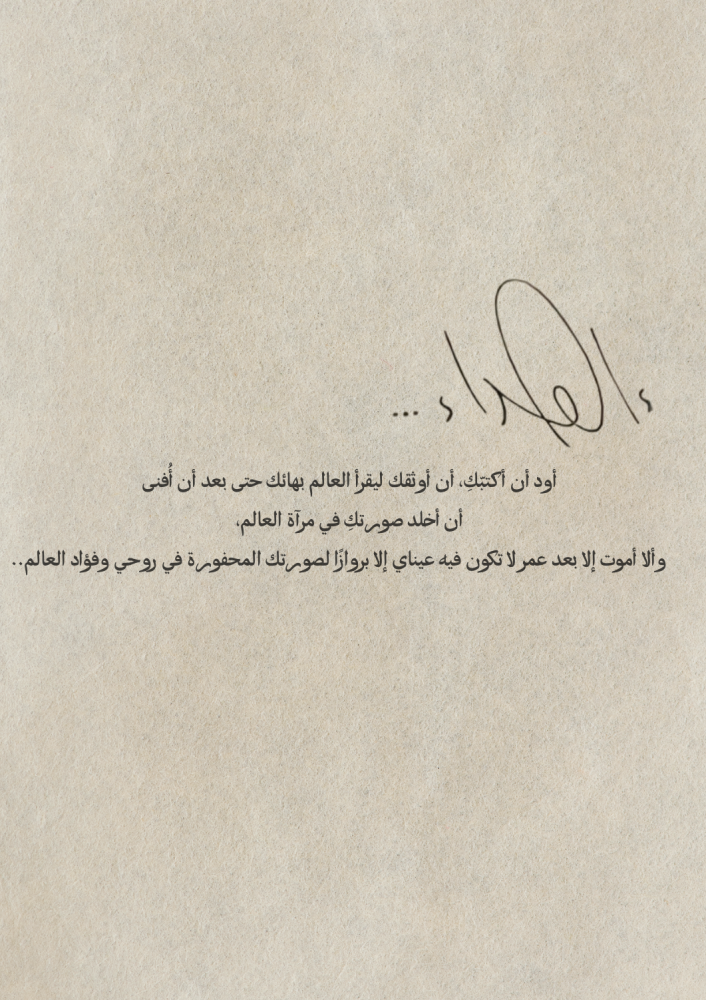 الإهداء ...
أود أن أكتبّكِ، أن أوثقك ليقرأ العالم بهائك حتى بعد أن أُفنى
أن أخلد صورتكِ في مرآة العالم،
وألا أموت إلا بعد عمر لا تكون فيه عيناي إلا بروازًا لصورتك المحفورة في روحي وفؤاد العالم..